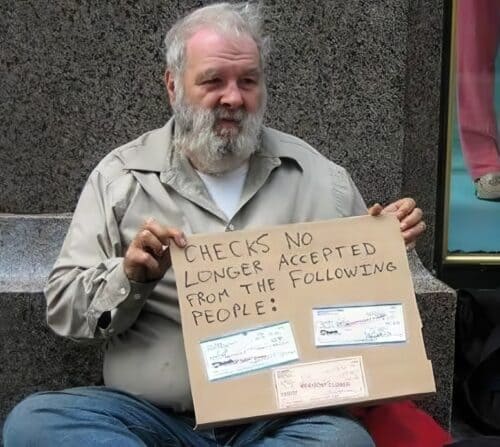 CHECKS NO
LONGER ACCEPTED
FROM THE FOLLOWING
PEOPLE: